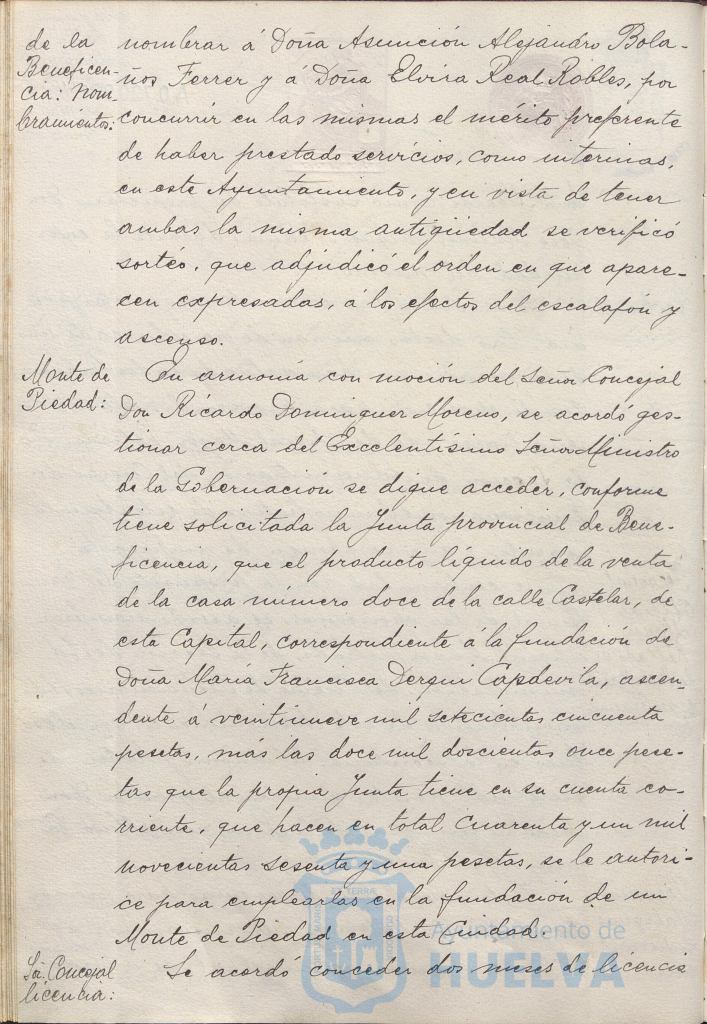 de la
Beneficen-
cia: Nom-
bramientos:
nombrar á Doña Asunción Alejandro Bola-
ños Ferrer y á Doña Elvira Real Robles, por
concurrir en las mismas el mérito preferente
de haber prestado servicios, como interinas,
en este Ayuntamiento, y en vista de tener
ambas la misma antigüedad se verificó
sorteo, que adjudicó el orden en que apare-
cen expresadas, á los efectos del escalafón y
ascenso.
Monte de
Piedad:
En armonía con moción del Señor Concejal
Don Ricardo Dominguez Moreno, se acordó ges-
tionar cerca del Excelentísimo Señor Ministro
de la Gobernación se digne acceder, conforme
tiene solicitada la Junta provincial de Bene-
ficencia, que el producto líquido de la venta
de la casa número doce de la calle Castelar, de
esta Capital, correspondiente á la fundación de
Doña María Francisca Derqui Capdevila, ascen-
dente á veintinueve mil setecientas cincuenta
pesetas, más las doce mil doscientas once pese-
tas que la propia Junta tiene en su cuenta co-
rriente, que hacen en total cuarenta y un mil
novecientas sesenta y una pesetas, se le autori-
ce para emplearlas en la fundación de un
Monte de Piedad en esta Ciudad.
Sr. Concejal
licencia:
Se acordó conceder dos meses de licencia
Ayuntamiento de
HUELVA